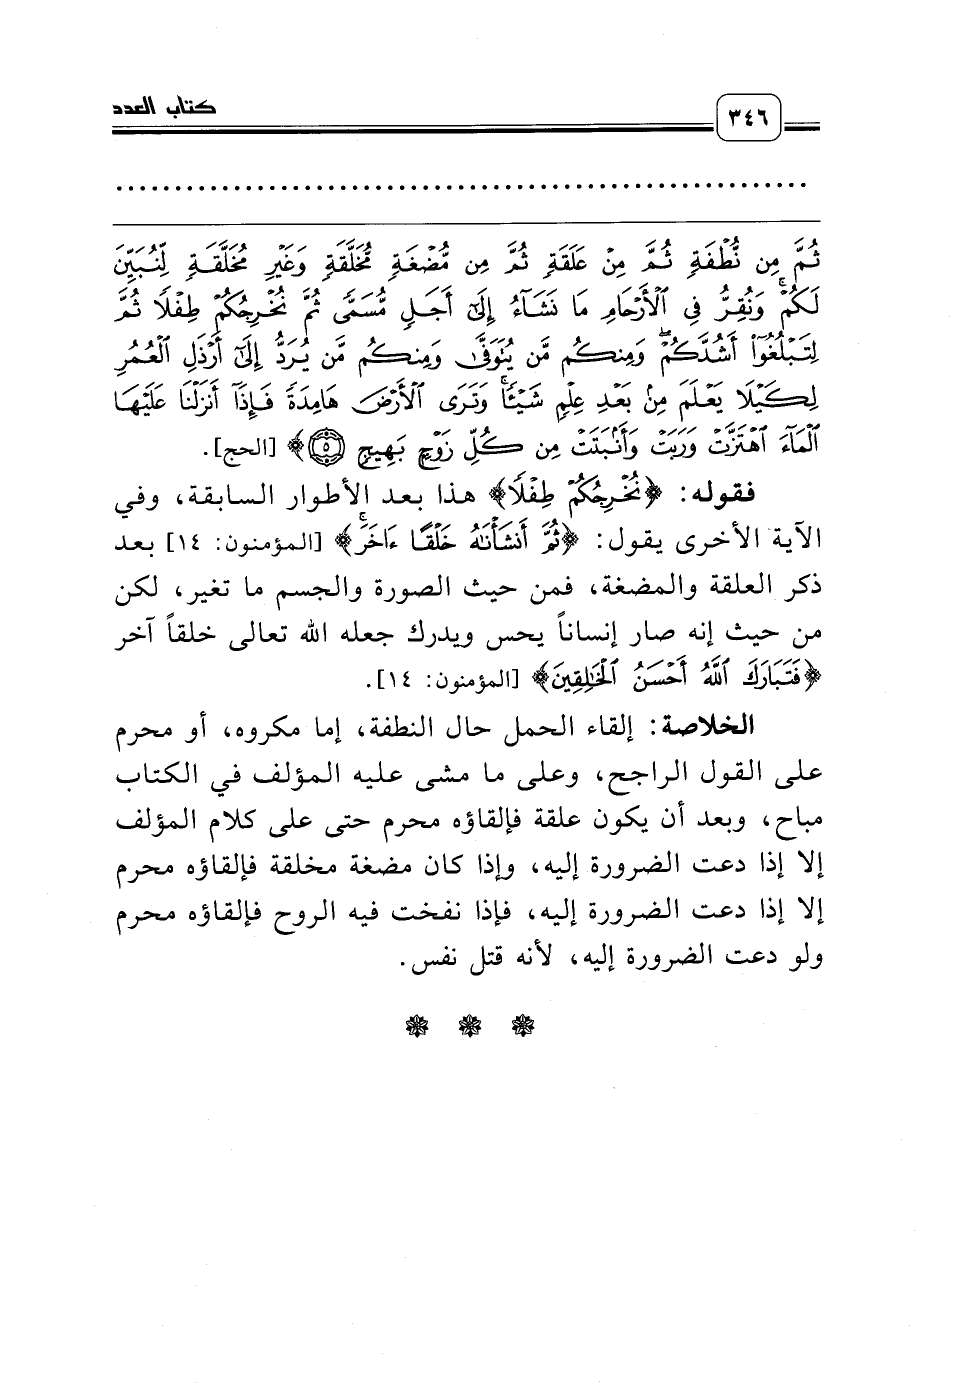 ٣٤٦
كتاب العدد
ثُمَّ مِن نُّطْفَةٍ ثُمَّ مِنْ عَلَقَةٍ ثُمَّ مِن مُّضْغَةٍ مُّخَلَّقَةٍ وَغَيْرِ مُخَلَّقَةٍ لِّنُبَيِّنَ
لَكُمْ ۚ وَنُقِرُّ فِي ٱلْأَرْحَامِ مَا نَشَآءُ إِلَىٰٓ أَجَلٍ مُّسَمًّى ثُمَّ نُخْرِجُكُمْ طِفْلًا ثُمَّ
لِتَبْلُغُوٓا۟ أَشُدَّكُمْ ۖ وَمِنكُم مَّن يُتَوَفَّىٰ وَمِنكُم مَّن يُرَدُّ إِلَىٰٓ أَرْذَلِ ٱلْعُمُرِ
لِكَيْلَا يَعْلَمَ مِنۢ بَعْدِ عِلْمٍ شَيْـًٔا ۚ وَتَرَى ٱلْأَرْضَ هَامِدَةً فَإِذَآ أَنزَلْنَا عَلَيْهَا
ٱلْمَآءَ ٱهْتَزَّتْ وَرَبَتْ وَأَنۢبَتَتْ مِن كُلِّ زَوْجٍۭ بَهِيجٍ ٥﴾ [الحج].
فقوله: ﴿نُخْرِجُكُمْ طِفْلًا﴾ هذا بعد الأطوار السابقة، وفي
الآية الأخرى يقول: ﴿ثُمَّ أَنشَأْنَـٰهُ خَلْقًا ءَاخَرَ ۚ﴾ [المؤمنون: ١٤] بعد
ذكر العلقة والمضغة، فمن حيث الصورة والجسم ما تغير، لكن
من حيث إنه صار إنساناً يحس ويدرك جعله الله تعالى خلقاً آخر
﴿فَتَبَارَكَ ٱللَّهُ أَحْسَنُ ٱلْخَـٰلِقِينَ﴾ [المؤمنون: ١٤].
الخلاصة: إلقاء الحمل حال النطفة، إما مكروه، أو محرم
على القول الراجح، وعلى ما مشى عليه المؤلف في الكتاب
مباح، وبعد أن يكون علقة فإلقاؤه محرم حتى على كلام المؤلف
إلا إذا دعت الضرورة إليه، وإذا كان مضغة مخلقة فإلقاؤه محرم
إلا إذا دعت الضرورة إليه، فإذا نفخت فيه الروح فإلقاؤه محرم
ولو دعت الضرورة إليه، لأنه قتل نفس.